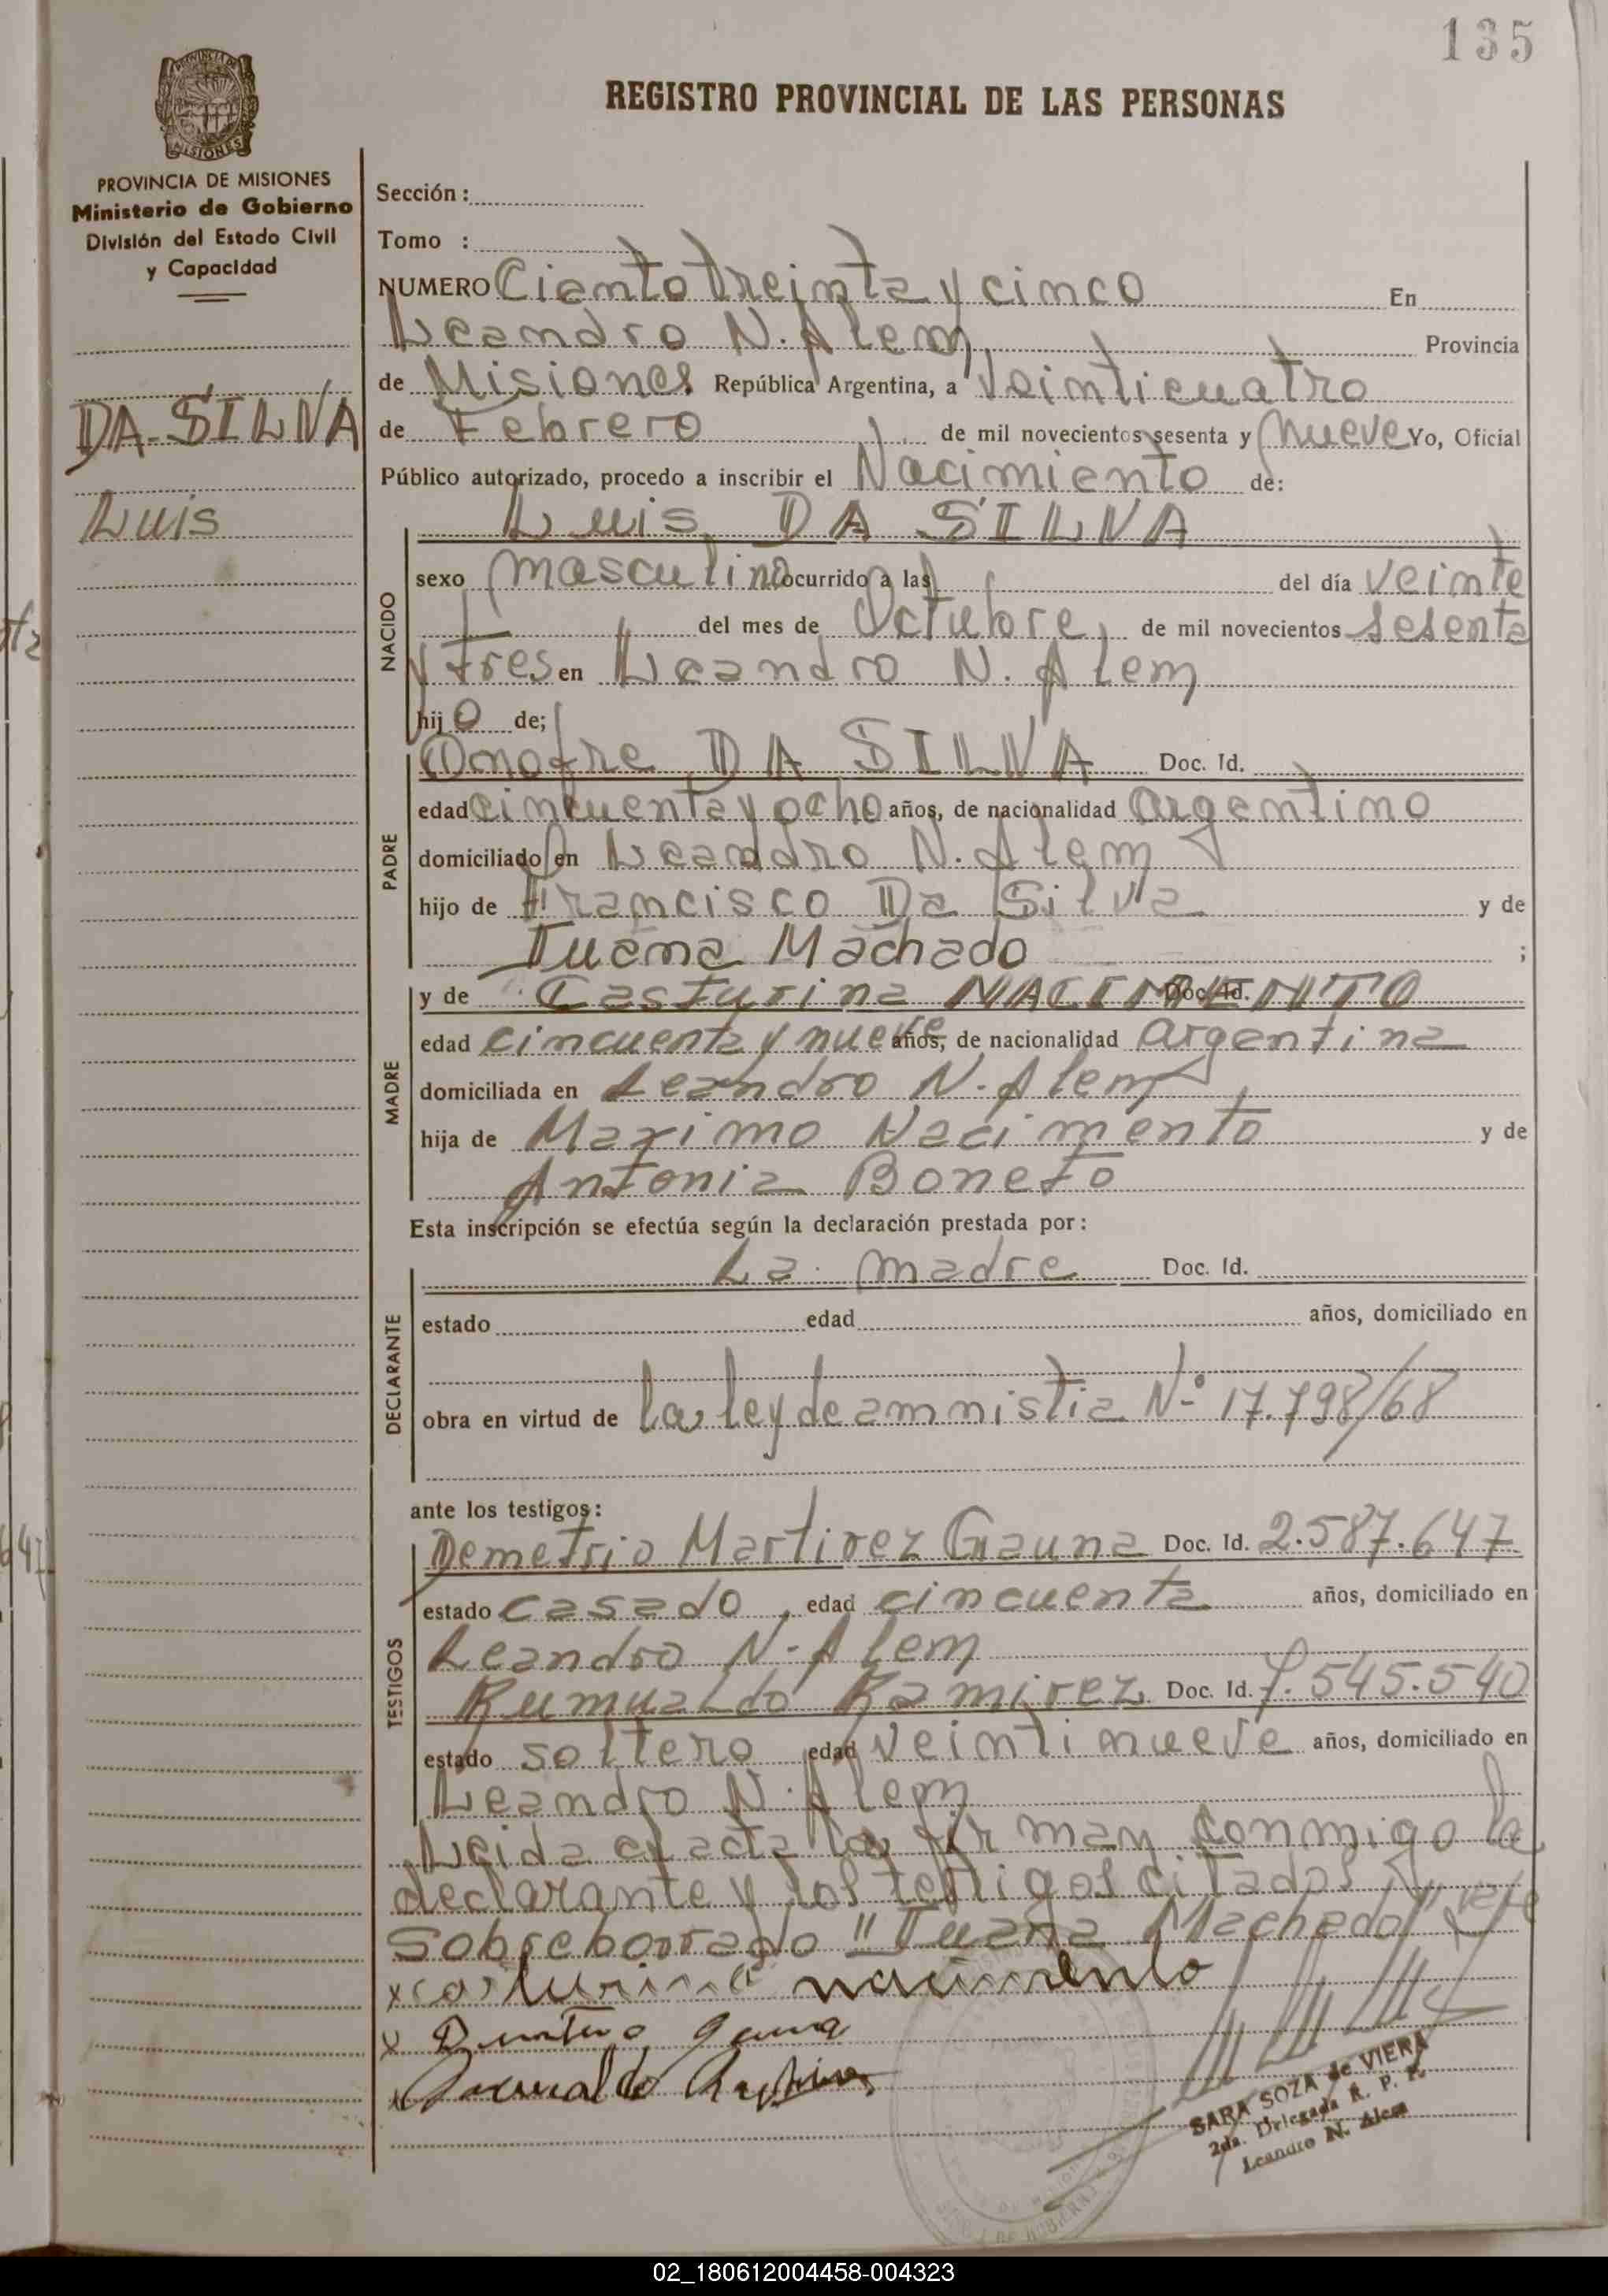 135
PROVINCIA DE
MISIONES
REGISTRO PROVINCIAL DE LAS PERSONAS
PROVINCIA DE MISIONES
Ministerio de Gobierno
División del Estado Civil
y Capacidad
DA SILVA
Luis
Sección :
Tomo :
NUMERO Ciento treinta y cinco En
Leandro N. Alem, Provincia
de Misiones República Argentina, a Veinticuatro
de Febrero de mil novecientos sesenta y nueve Yo, Oficial
Público autorizado, procedo a inscribir el Nacimiento de:
NACIDO
Luis DA SILVA
sexo masculino ocurrido a las del día veinte
del mes de Octubre, de mil novecientos sesenta
y tres en Leandro N. Alem
hijo de;
PADRE
Onofre DA SILVA Doc. Id.
edad cincuenta y ocho años, de nacionalidad argentino
domiciliado en Leandro N. Alem
hijo de Francisco Da Silva y de
Juana Machado ;
MADRE
y de Casturina NACIMENTO Doc. Id.
edad cincuenta y nueve años, de nacionalidad argentina
domiciliada en Leandro N. Alem
hija de Maximo Nacimento y de
Antonia Boneto
Esta inscripción se efectúa según la declaración prestada por:
DECLARANTE
La madre Doc. Id.
estado edad años, domiciliado en
obra en virtud de la ley de amnistia Nº 17.798/68
ante los testigos:
TESTIGOS
Demetrio Martirez Gauna Doc. Id. 2.587.647
estado casado, edad cincuenta años, domiciliado en
Leandro N. Alem
Rumualdo Ramirez Doc. Id. 7.545.540
estado soltero edad veintinueve años, domiciliado en
Leandro N. Alem
Leida el acta la firman conmigo la
declarante y los testigos citados
Sobreborrado "Juana Machado" vale
x casturina nacimento
x Demetrio gauna
SARA SOZA de VIERA
2da. Delegada R. P. P.
Leandro N. Alem
02_180612004458-004323